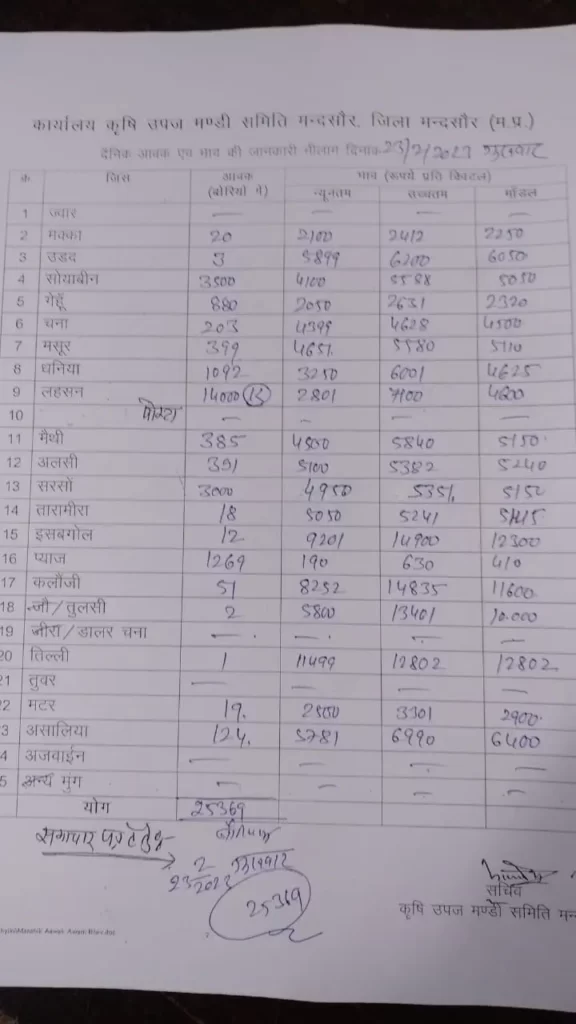 कार्यालय कृषि उपज मण्डी समिति मन्दसौर, जिला मन्दसौर (म.प्र.)
दैनिक आवक एवं भाव की जानकारी नीलाम दिनांक 23/2/2023 गुरुवार
क्र जिंस आवक (बोरियों में) भाव (रूपये प्रति क्विंटल)
न्यूनतम उच्चतम मॉडल
1 ज्वार — — — —
2 मक्का 20 2100 2412 2250
3 उडद 3 5899 6200 6050
4 सोयाबीन 3500 4100 5588 5050
5 गेहूँ 880 2050 2631 2320
6 चना 203 4399 4628 4500
7 मसूर 399 4651 5580 5110
8 धनिया 1092 3250 6001 4625
9 लहसन 14000 2801 7100 4600
10 पोस्ता — — — —
11 मैथी 385 4500 5840 5150
12 अलसी 391 5100 5382 5240
13 सरसो 3000 4950 5351 5150
14 तारामीरा 18 5050 5241 5145
15 इसबगोल 12 9201 14900 12300
16 प्याज 1269 190 630 410
17 कलौंजी 51 8252 14835 11600
18 जौ/तुलसी 2 5800 13401 10.000
19 जीरा/डालर चना — — — —
20 तिल्ली 1 11499 12802 12802
21 तुवर — — — —
22 मटर 19 2500 3301 2900
23 असालिया 124 5781 6990 6400
4 अजवाईन — — — —
5 अन्य मुंग — — — —
योग 25369
समाचार पत्र हेतु
23/2/2023 गुरुवार
25369
सचिव
कृषि उपज मण्डी समिति मन